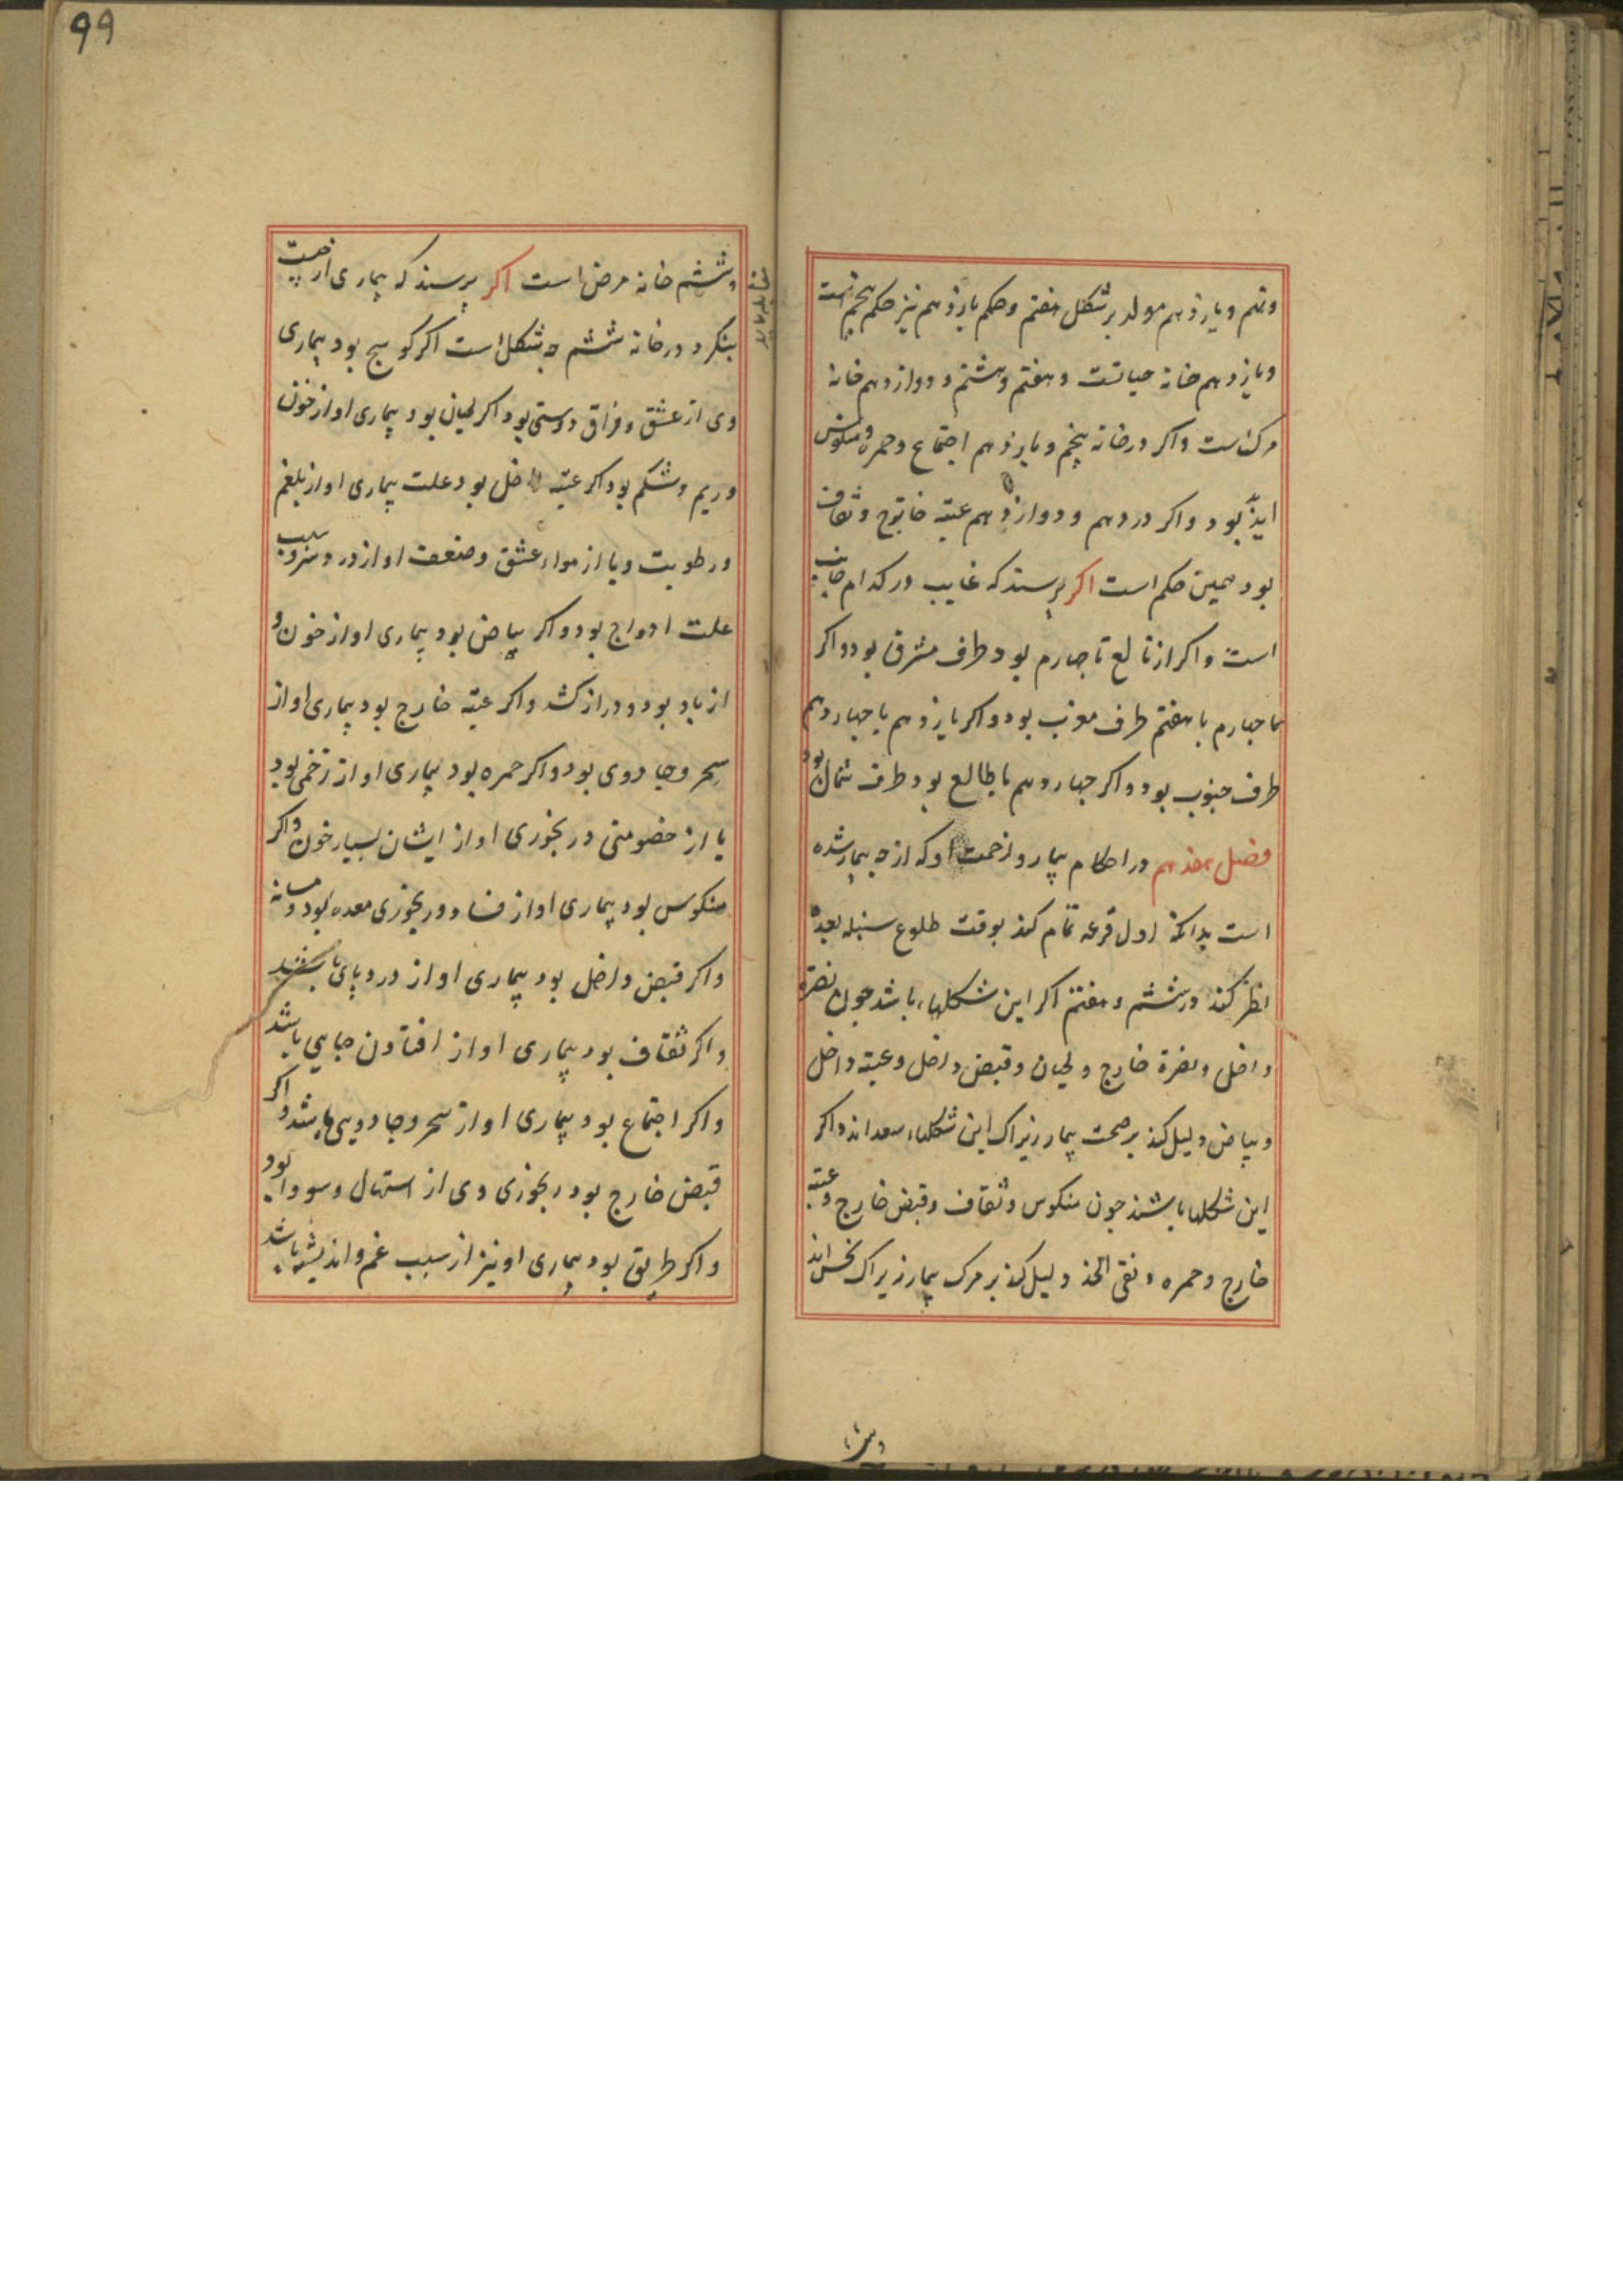 ونهم و یازدهم مولد بر شکل هفتم و حکم یازدهم نیز حکم پنجم است
و یازدهم خانه حیاتست و هفتم و هشتم و دوازدهم خانه
مرک است واکر در خانه پنجم و یازدهم اجتماع و حمره و منکوس
اید بود واکر در دهم و دوازدهم عتبه خارج و ثقاف
بود همین حکم است اکر پرسند که غایب در کدام جانب
است واکر از تالع تا چهارم بود طرف مشرق بود واکر
چهارم با هفتم طرف مغرب بود واکر یازدهم با چهاردهم
طرف جنوب بود واکر چهاردهم با طالع بود طرف شمال بود
فصل هفدهم در احکام بیمار و زحمت او که از چه بیمار شده
است بدانکه اول قرعه تمام کند بوقت طلوع سنبله بعده
نظر کند در ششم و هفتم اکر این شکلها باشد چون نضرة
داخل و نضرة خارج و لحیان و قبض داخل و عتبه داخل
و بیاض دلیل کند بر صحت بیمار زیراک این شکلها سعد اند واکر
این شکلها باشند چون منکوس و ثقاف و قبض خارج و عتبه
خارج و حمره و نقی الخد دلیل کند بر مرک بیمار زیراک نحس اند
99
و ششم خانه مرض است اکر پرسند که بیماری از چیست
بنکرد در خانه ششم چه شکل است اکر کوسج بود بیماری
وی از عشق و فراق دوستی بود اکر لحیان بود بیماری او از خون
وریم و شکم بود اکر عتبه داخل بود علت بیماری او از بلغم
و رطوبت و یا از هواء عشق و ضعف او از درد سر و سبب
علت ازواج بود و اکر بیاض بود بیماری او از خون و
از باد بود و دراز کشد واکر عتبه خارج بود بیماری او از
سحر و جادوی بود واکر حمره بود بیماری او از زخمی بود
یا از خصومتی و رنجوری او از ایشان بسیار خون واکر
منکوس بود بیماری او از فساد و رنجوری معده بود و مسانه
واکر قبض داخل بود بیماری او از درد پای
واکر ثقاف بود بیماری او از افتادن جایی باشد
واکر اجتماع بود بیماری او از سحر و جادویی باشد واکر
قبض خارج بود رنجوری وی از استهال و سودا بود
واکر طریق بود بیماری او نیز از سبب غم و اندیشه باشد